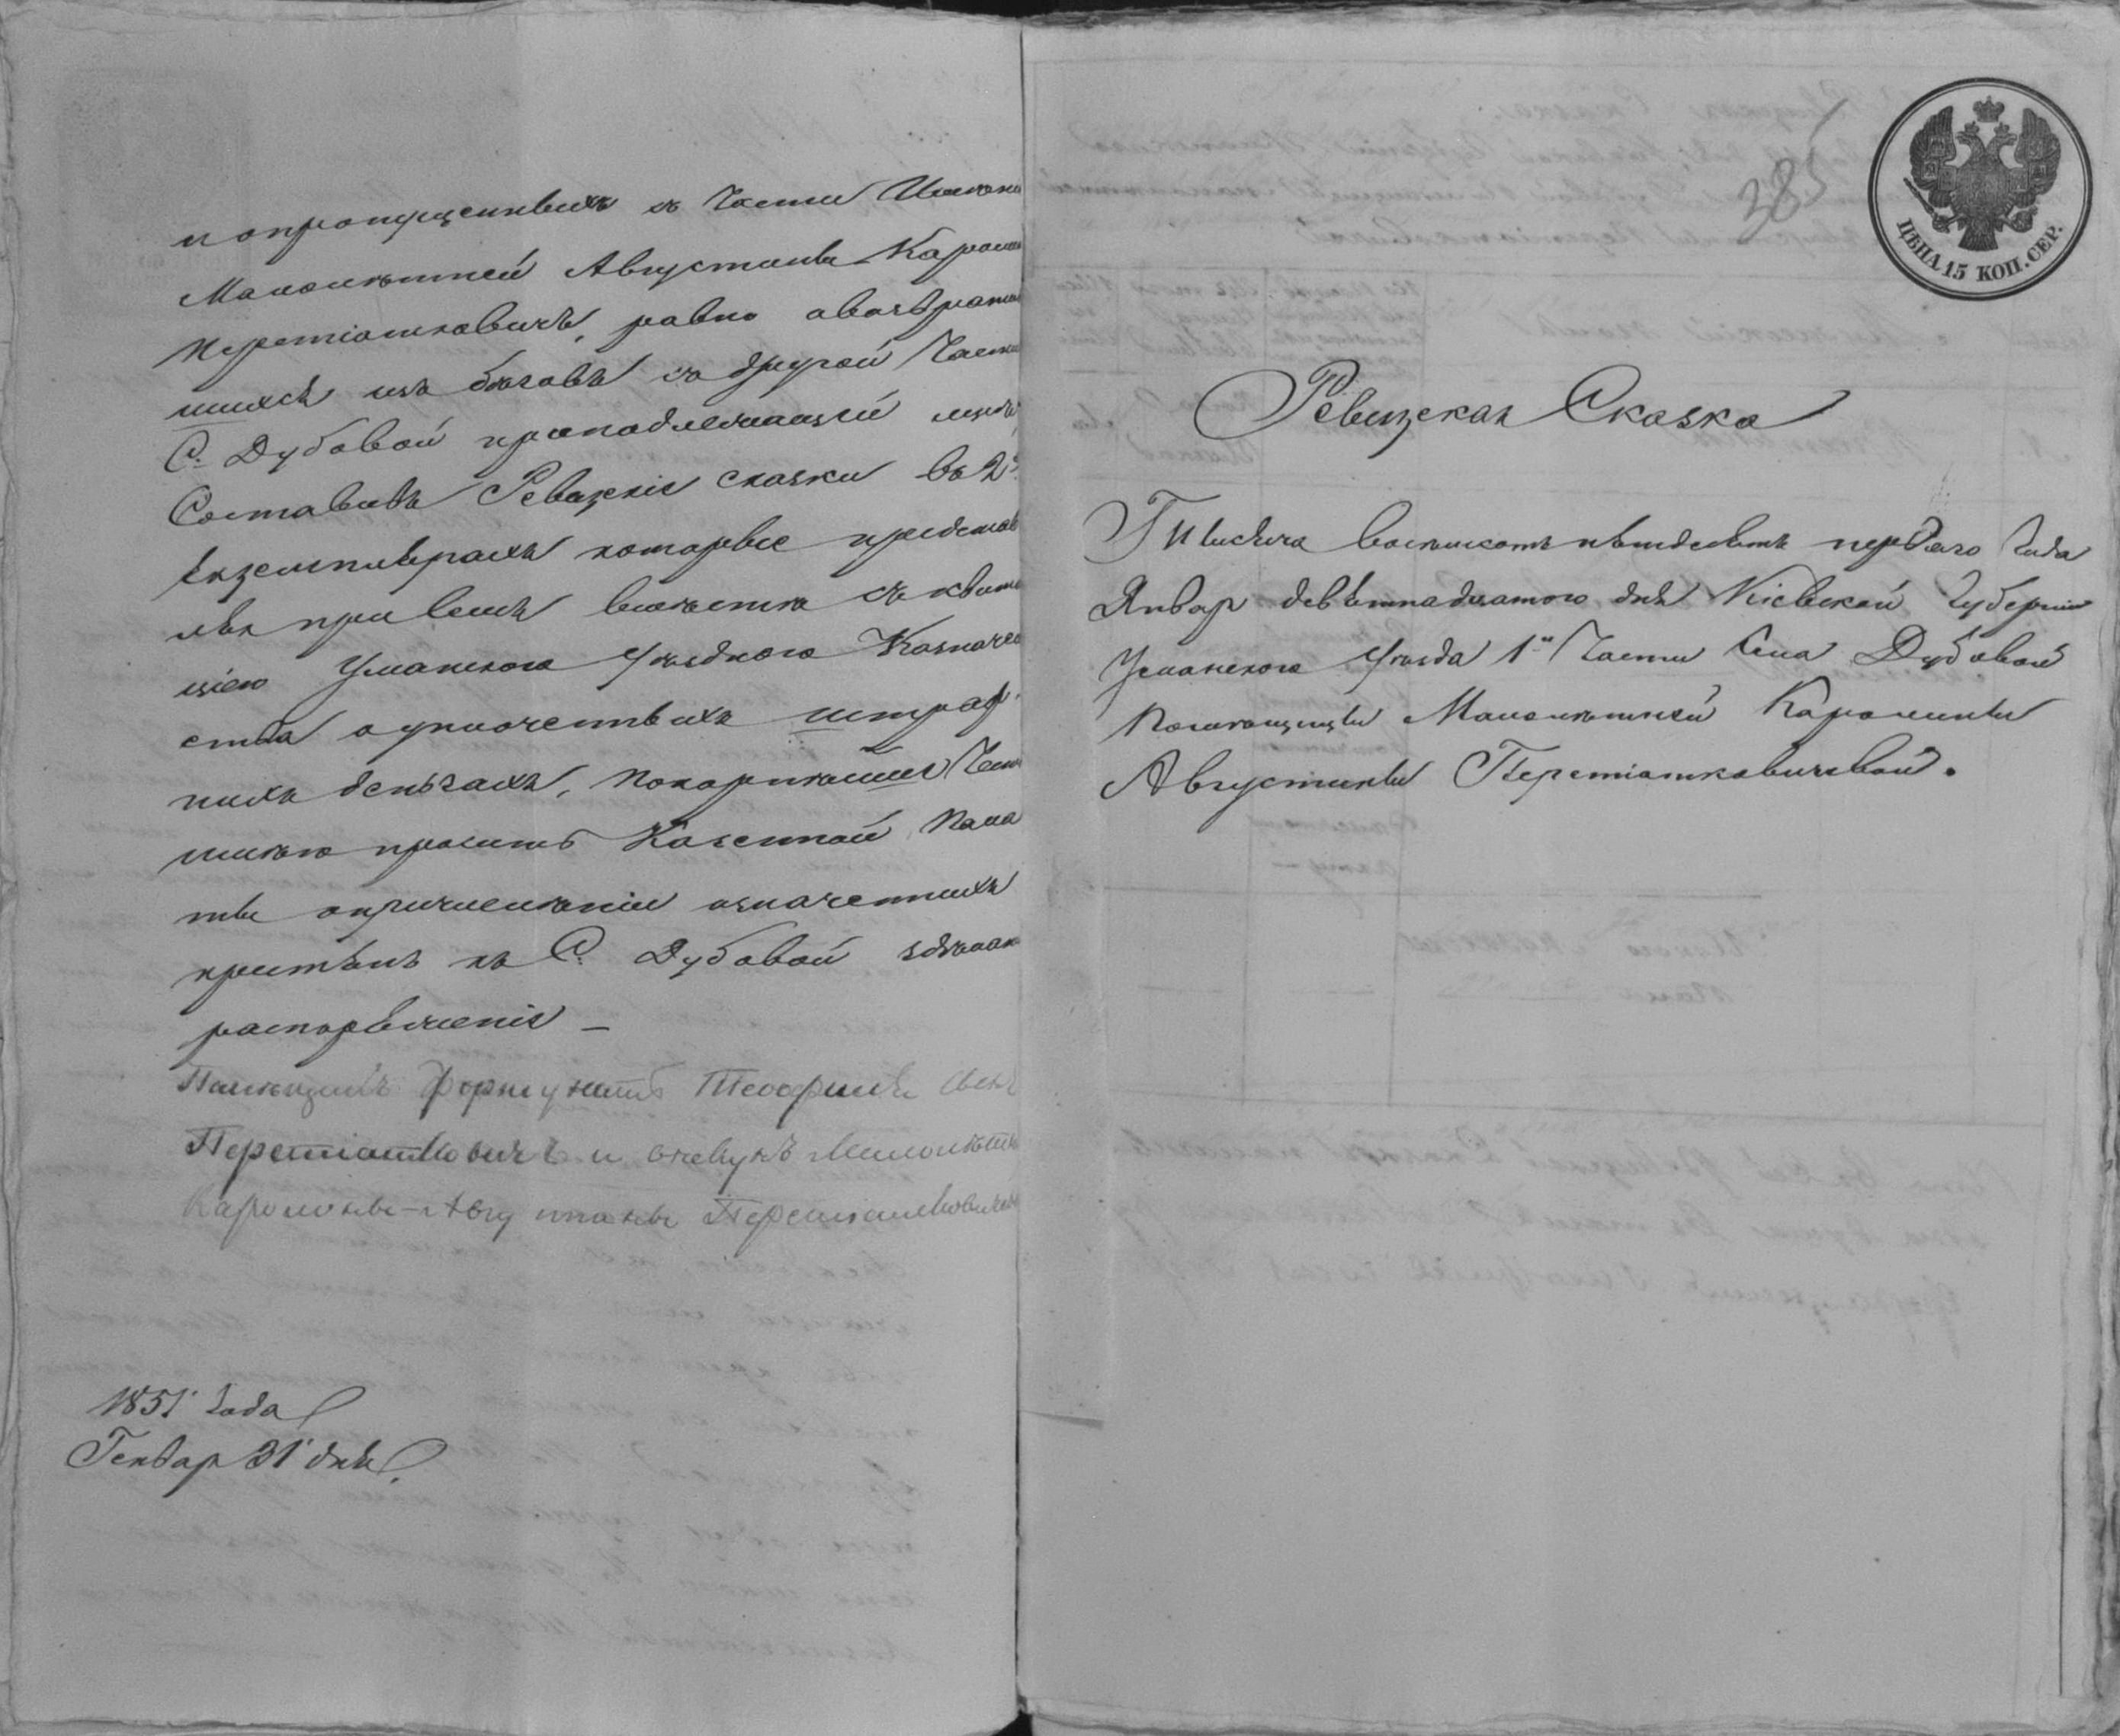 и опропущенныхъ съ Части Имени
Малолѣтней Августины Кароли
Перетіатковичъ, равно авозврати
шихся изъ бѣговъ съ другой Части
С. Дубовой принадлежащей мнѣ,
Составивъ Ревизскіе сказки въ 2х
Екземплярахъ которые представ
ляя при семъ вмѣстѣ съ квита
ціею Уманского Уѣздного Казначей
ства о уплоченныхъ штраф
ныхъ деньгахъ, покорнѣйше Чест
имѣю просить Казенной Пала
ты опричисленіи означенныхъ
крестьянъ къ С. Дубовой здѣлат
распоряженія —
Помѣщикъ Фортунатъ Теофилъ
Перетіатковичъ и опекунъ Малолѣтн
Каролины-Августины Перетіатковичев
1851 года
Генвар 31 дня
385
ЦѢНА 15 КОП. СЕР.
Ревизская Сказка
Тысяча восемьсотъ пятдесятъ первого Года
Январ девятнадцатого дня Кіевской Губерніи
Уманского Уѣзда 1й Части Села Дубовой
Помѣщицы Малолѣтней Каролины
Августины Перетіатковичевой.